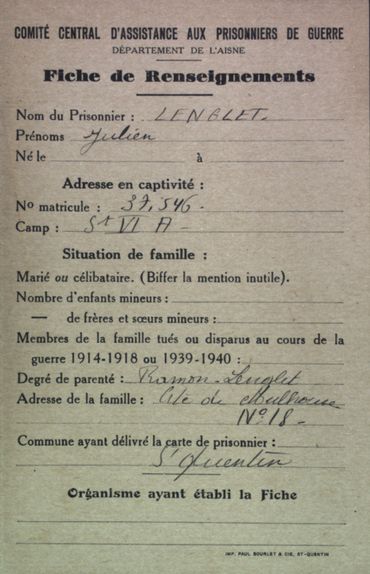 COMITÉ CENTRAL D'ASSISTANCE AUX PRISONNIERS DE GUERRE
DÉPARTEMENT DE L'AISNE
Fiche de Renseignements
Nom du Prisonnier : LENGLET.
Prénoms Julien
Né le à
Adresse en captivité :
No matricule : 37.546 -
Camp : St VI A -
Situation de famille :
Marié ou célibataire. (Biffer la mention inutile).
Nombre d'enfants mineurs :
— de frères et sœurs mineurs :
Membres de la famille tués ou disparus au cours de la
guerre 1914-1918 ou 1939-1940 :
Degré de parenté : Ramon-Lenglet
Adresse de la famille : Cité de Mulhouse
No 18 -
Commune ayant délivré la carte de prisonnier :
St Quentin
Organisme ayant établi la Fiche
IMP. PAUL BOURLET & CIE, ST-QUENTIN